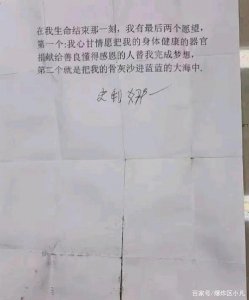 在我生命结束那一刻，我有最后两个愿望，
第一个：我心甘情愿把我的身体健康的器官
捐献给善良懂得感恩的人替我完成梦想，
第二个就是把我的骨灰沙进蓝蓝的大海中.
史利
百家号/爆炸区小凡